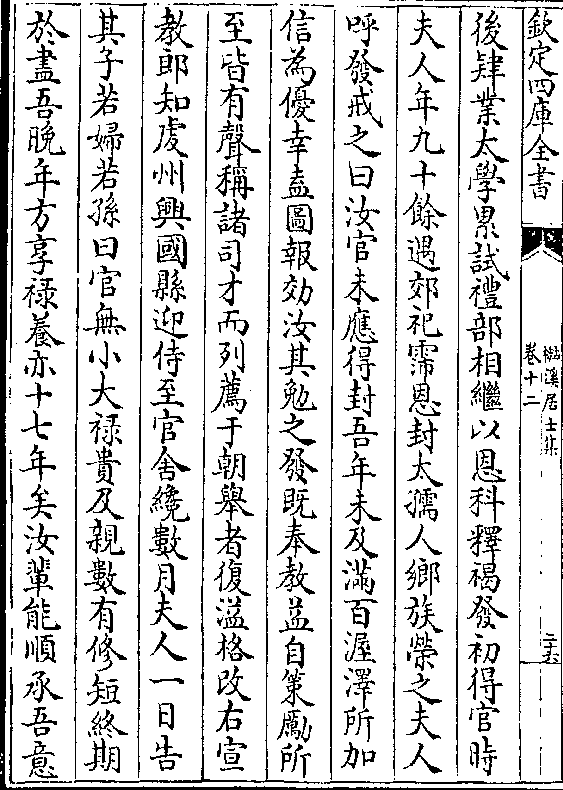 欽定四庫全書
檆溪居士集
卷十二
二十六
後肄業太學累試禮部相繼以恩科釋褐發初得官時
夫人年九十餘遇郊祀霈恩封太孺人鄉族榮之夫人
呼發戒之曰汝官未應得封吾年未及滿百渥澤所加
信為優幸盍圖報効汝其勉之發既奉教益自策勵所
至皆有聲稱諸司才而列薦于朝舉者復溢格改右宣
教郎知䖍州興國縣迎侍至官舍纔數月夫人一日告
其子若婦若孫曰官無小大祿貴及親數有修短終期
於盡吾晩年方享祿養亦十七年矣汝輩能順承吾意